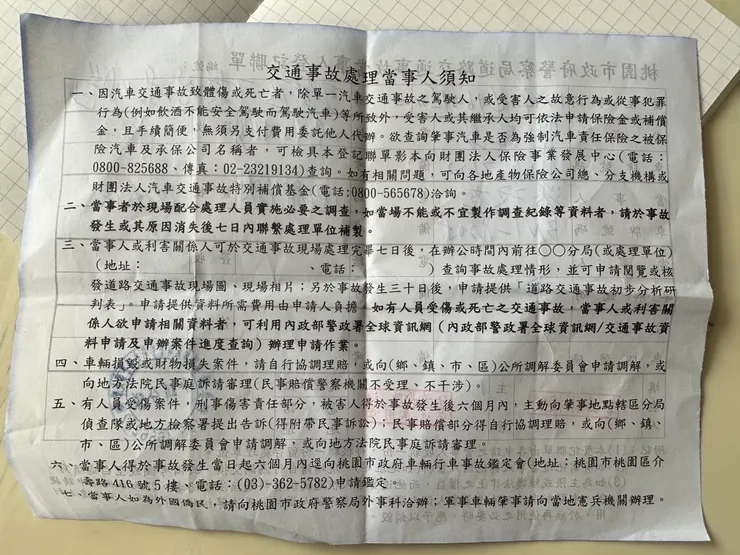 交通事故處理當事人須知
一、因汽車交通事故致體傷或死亡者，除單一汽車交通事故之駕駛人，或受害人之故意行為或從事犯罪
行為(例如飲酒不能安全駕駛而駕駛汽車)等所致外，受害人或其繼承人均可依法申請保險金或補償
金，且手續簡便，無須另支付費用委託他人代辦。欲查詢肇事汽車是否為強制汽車責任保險之被保
險汽車及承保公司名稱者，可檢具本登記聯單影本向財團法人保險事業發展中心(電話：
0800-825688、傳真：02-23219134)查詢。如有相關問題，可向各地產物保險公司總、分支機構或
財團法人汽車交通事故特別補償基金(電話:0800-565678)洽詢。
二、當事者於現場配合處理人員實施必要之調查，如當場不能或不宜製作調查紀錄等資料者，請於事故
發生或其原因消失後七日內聯繫處理單位補製
三、當事人或利害關係人可於交通事故現場處理完畢七日後，在辦公時間內前往○○分局(或處理單位)
(地址：、電話：)查詢事故處理情形，並可申請閱覽或核
發道路交通事故現場圖、現場相片；另於事故發生三十日後，申請提供「道路交通事故初步分析研
判表」。申請提供資料所需費用由申請人負擔。如有人員受傷或死亡之交通事故，當事人或利害關
係人欲申請相關資料者，可利用內政部警政署全球資訊網(內政部警政署全球資訊網/交通事故資
料申請及申辦案件進度查詢)辦理申請作業。
四、車輛損毀或財物損失案件，請自行協調理賠，或向(鄉、鎮、市、區)公所調解委員會申請調解，或
向地方法院民事庭訴請審理(民事賠償警察機關不受理、不干涉)。
五、有人員受傷案件，刑事傷害責任部分，被害人得於事故發生後六個月內，主動向肇事地點轄區分局
偵查隊或地方檢察署提出告訴(得附帶民事訴訟)；民事賠償部分得自行協調理賠，或向(鄉、鎮、
市、區)公所調解委員會申請調解，或向地方法院民事庭訴請審理。
六、當事人得於事故發生當日起六個月內逕向桃園市政府車輛行車事故鑑定會(地址：桃園市桃園區介
壽路 416 號 5 樓、電話：(03)-362-5782)申請鑑定。
七、當事人如為外國僑民，請向桃園市政府警察局外事科洽辦；軍事車輛肇事請向當地憲兵機關辦理。